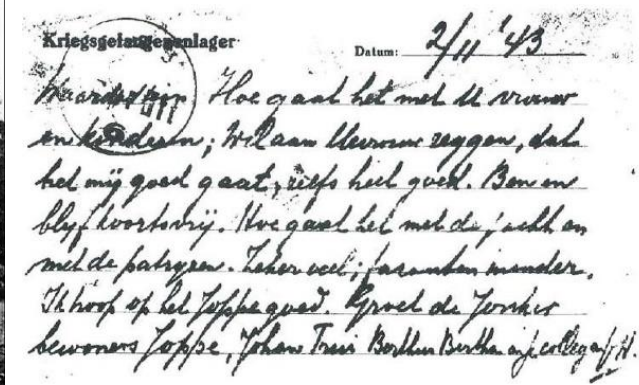 Kriegsgefangenenlager Datum: 2/11 '43
Hoe gaat het met U vrouw
en kinderen; Wil aan Mevrouw zeggen, dat
het mij goed gaat, zelfs heel goed. Ben en
blijf koortsvrij. Hoe gaat het met de jacht en
met de patrijzen. Zeker veel; fasanten minder.
Ik hoop op het Joppe goed. Groet de Jonker
bewoners Joppe, Johan Trui Berthus Bertha en je collega's